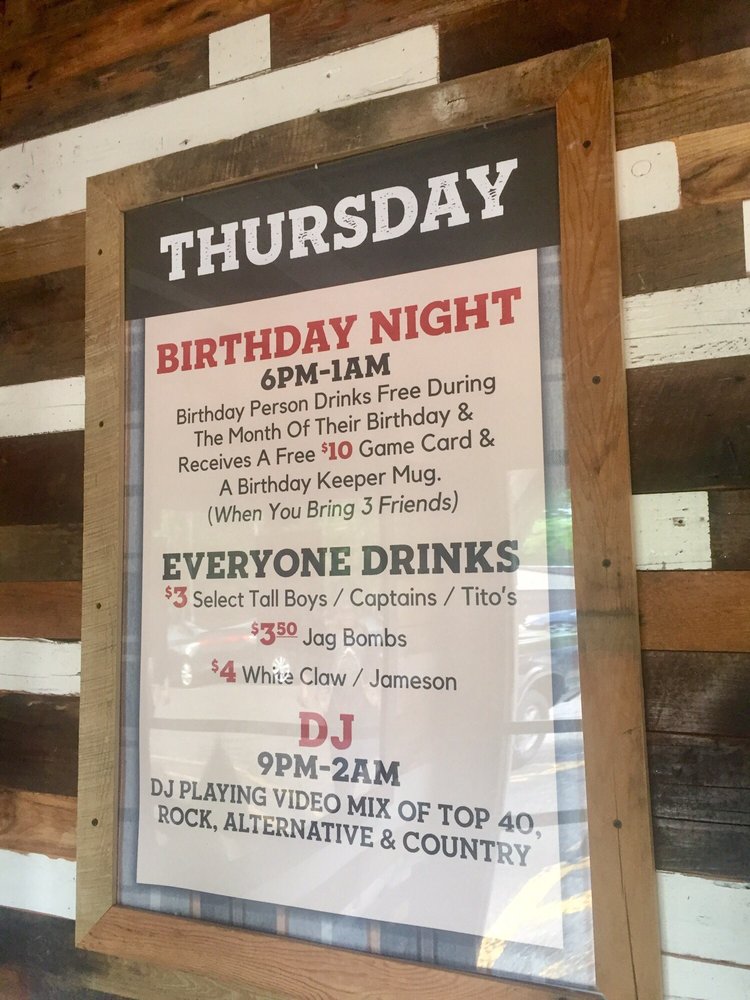 THURSDAY
BIRTHDAY NIGHT
6PM-1AM
Birthday Person Drinks Free During
The Month Of Their Birthday &
Receives A Free $10 Game Card &
A Birthday Keeper Mug.
(When You Bring 3 Friends)
EVERYONE DRINKS
$3 Select Tall Boys / Captains / Tito's
$3.50 Jag Bombs
$4 White Claw / Jameson
DJ
9PM-2AM
DJ PLAYING VIDEO MIX OF TOP 40,
ROCK, ALTERNATIVE & COUNTRY